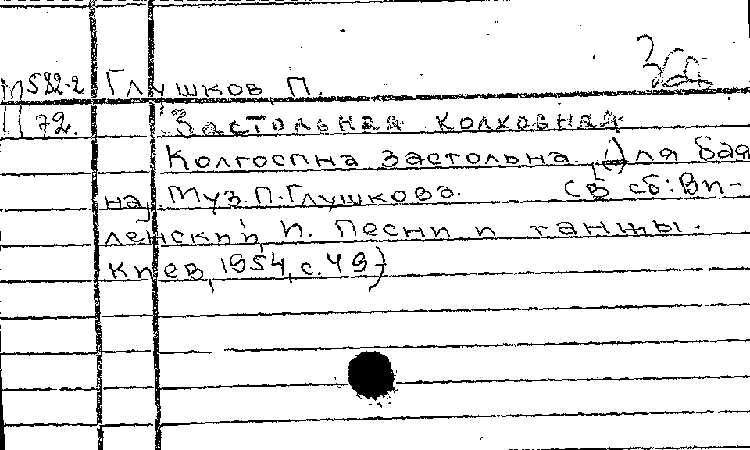 П 532-2 Глушков, П.
72. Застольная колхозная
Колгоспна застольна, (Для бая
на) Муз. П. Глушкова. (в сб: Ви-
ленский, И. Песни и танцы.
Киев, 1954, с. 49)